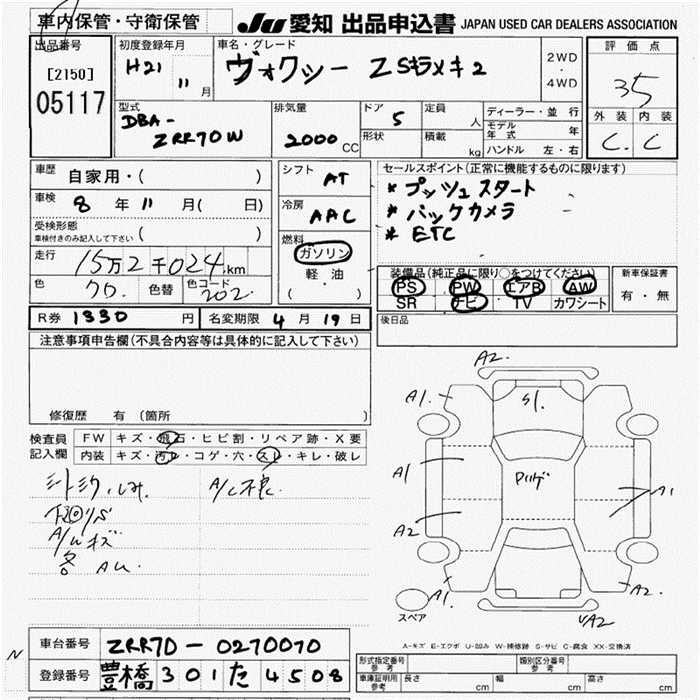 車内保管・守衛保管
JU 愛知 出品申込書 JAPAN USED CAR DEALERS ASSOCIATION
出品番号
[2150]
05117
初度登録年月
H21 11 月
車名・グレード
ヴォクシー ZSキラメキ2
2WD
・
4WD
評価点
3.5
外装 内装
C. C
型式
DBA-
ZRR70W
排気量
2000 CC
ドア
5
形状
定員
人
積載
kg
ディーラー・並行
モデル年式 年
ハンドル 左・右
車歴 自家用・( )
車検 8 年 11 月( 日)
受検形態
車検付きのみ記入して下さい ( )
走行 15万2千024km
色 クロ. 色替 色コード 202
シフト AT
冷房 AAC
燃料
ガソリン
軽・油
( )
セールスポイント(正常に機能するものに限ります)
* プッシュスタート
* バックカメラ
* ETC
装備品(純正品に限り○をつけてください)
PS PW エアB AW
SR ナビ TV カワシート
新車保証書
有・無
R券 1330 円 名変期限 4 月 19 日
後日品
注意事項申告欄(不具合内容等は具体的に記入して下さい)
修復歴 有 (箇所 )
検査員記入欄
FW キズ・飛石・ヒビ割・リペア跡・X要
内装 キズ・汚レ・コゲ・穴・スレ・キレ・破レ
シートシミ A/C不良.
A/Wキズ
各 AU.
A2.
A1. S1. A1.
A1
A2
A1
A1. A2.
A2
スペア
A-キズ E-エクボ U-凹み W-補修跡 S-サビ C-腐食 XX-交換済
車台番号 ZRR70-0270070
登録番号 豊橋 301 た 4508
型式指定番号参考 類別区分番号参考
車庫証明用参考 長さ cm 幅 cm 高さ cm
N